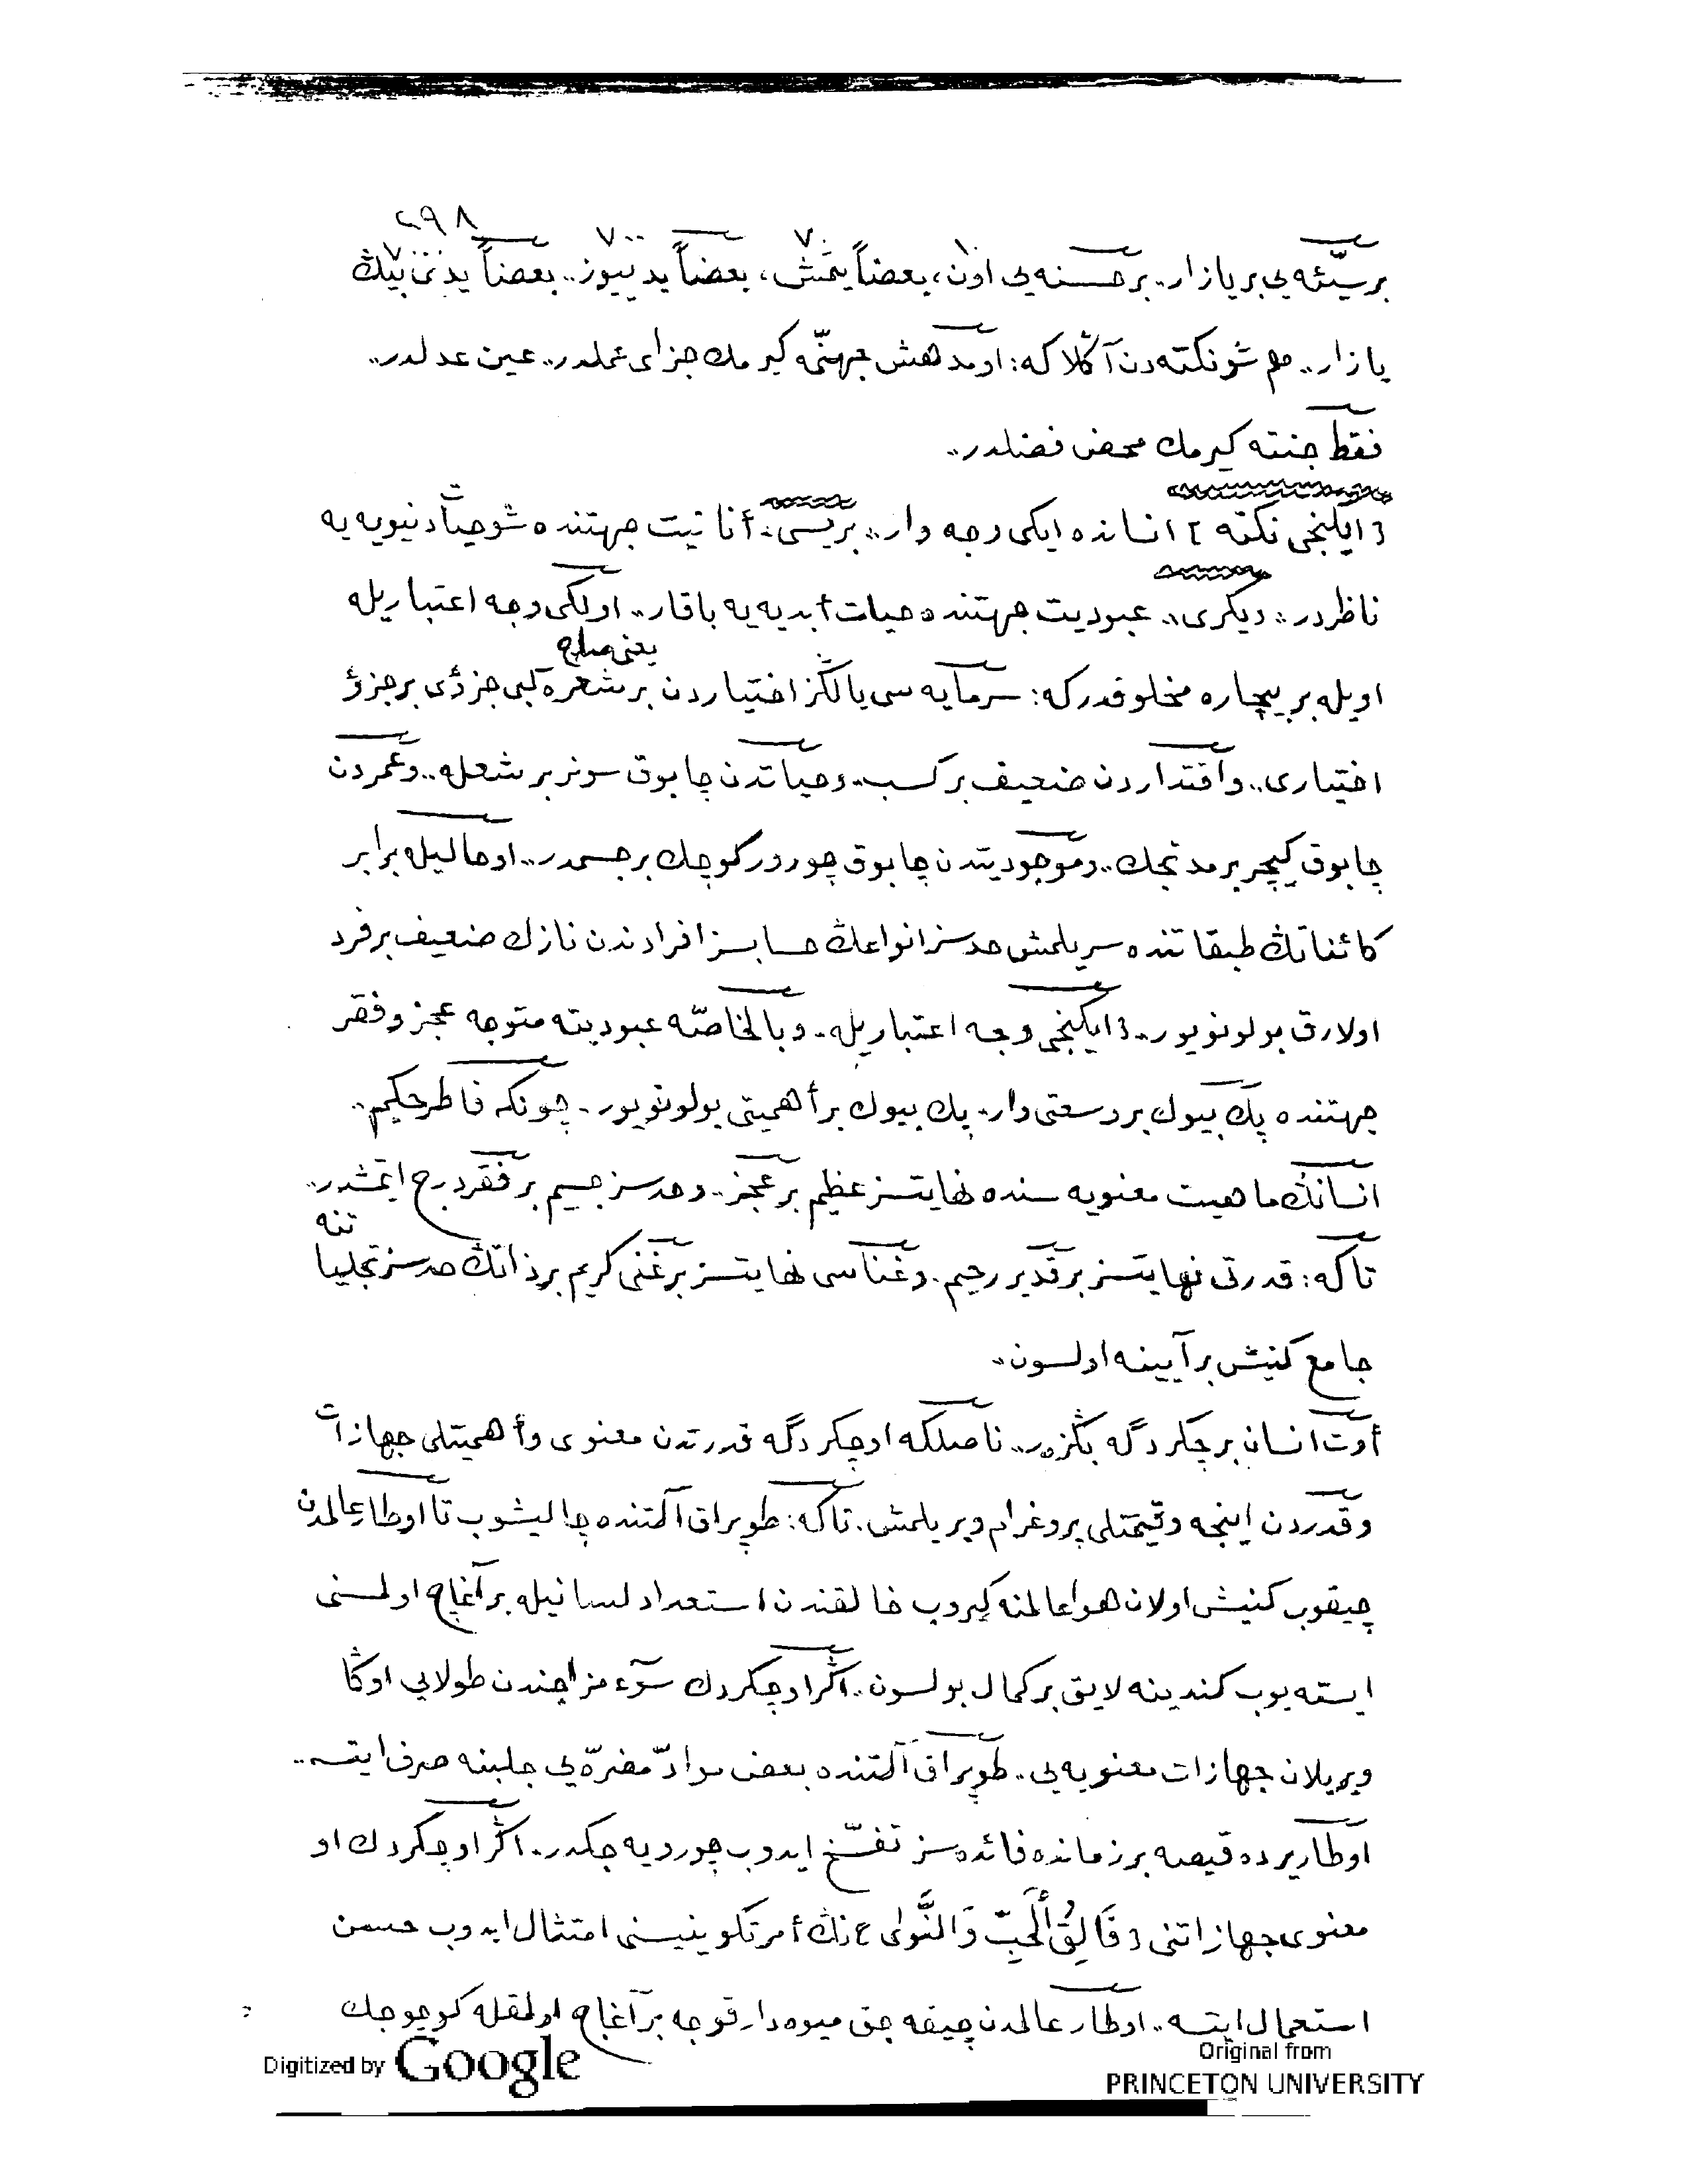 ٢٩٨
١٠ ٧٠ ٧٠٠ ٧٠٠٠
بر سيّئه‌يی بر يازار.. بر حسنه‌يی اون، بعضاً يتمش، بعضاً يديیوز.. بعضاً يدی بيڭ
يازار.. هم شو نكته‌دن آڭلا كه: او مدهش جهنّمه كيرمك جزای عملدر.. عين عدلدر..
فقط جنته كيرمك محض فضلدر..
﴿ ايكنجی نكته ﴾ انسانده ايكی وجه وار.. بريسی: أنانيت جهتنده شو حيات دنيويه‌يه
ناظردر.. ديكری.. عبوديت جهتنده حيات أبديه‌يه باقار.. اولكی وجه اعتباريله
اويله بر بيچاره مخلوقدر كه: سرمايه‌سی يالڭز اختياردن بر شعره كبی جزؤی بر جزؤ
يعنی صاچ
اختياری.. و اقتداردن ضعيف بر كسب.. و حياتدن چابوق سونر بر شعله.. و عمردن
چابوق كيچر بر مدتجك.. و موجوديتدن چابوق چورور كوچك بر جسمدر.. او حاليله برابر
كائناتڭ طبقاتنده سريلمش حدسز انواعڭ حسابسز افرادندن نازك ضعيف بر فرد
اولارق بولونويور.. ﴿ ايكنجی وجه اعتباريله.. و بالخاصّه عبوديته متوجه عجز و فقر
جهتنده پك بيوك بر وسعتی وار. پك بيوك بر أهميتی بولونويور.. چونكه فاطر حكيم..
انسانڭ ماهيت معنويه‌سنده نهايتسز عظيم بر عجز.. و حدسز جسيم بر فقر درج ايتمشدر..
تا كه: قدرتی نهايتسز بر قدير رحيم. و غناسی نهايتسز بر غنی كريم بر ذاتڭ حدسز تجلياتنه
جامع كنيش بر آيينه اولسون.
أوت انسان بر چكردگه بڭزه‌ر.. ناصلكه او چكردگه قدرتدن معنوی و أهميتلی جهازات
و قدردن اينجه و قيمتلی پروغرام ويريلمش. تا كه: طوپراق آلتنده چاليشوب تا او طار عالمدن
چيقوب كنيش اولان هوا عالمنه كيروب خالقندن استعداد لسانيله بر آغاج اولمسنی
ايسته‌يوب كندينه لايق بر كمال بولسون.. اڭر او چكردك سوء مزاجندن طولايی اوڭا
ويريلان جهازات معنويه‌يی.. طوپراق آلتنده بعض موادّ مضرّه‌يی جلبنه صرف ايتسه..
او طار يرده قيصه بر زمانده فائده‌سز تفسّخ ايدوب چورويه‌جكدر.. اڭر او چكردك او
معنوی جهازاتنی ﴿ فَالِقُ الْحَبِّ وَالنَّوٰى ﴾ نڭ أمر تكوينيسنی امتثال ايدوب حسن
استعمال ايتسه.. او طار عالمدن چيقه‌جق ميوه‌دار قوجه بر آغاج اولمقله كوچوجك
Digitized by Google
Original from
PRINCETON UNIVERSITY